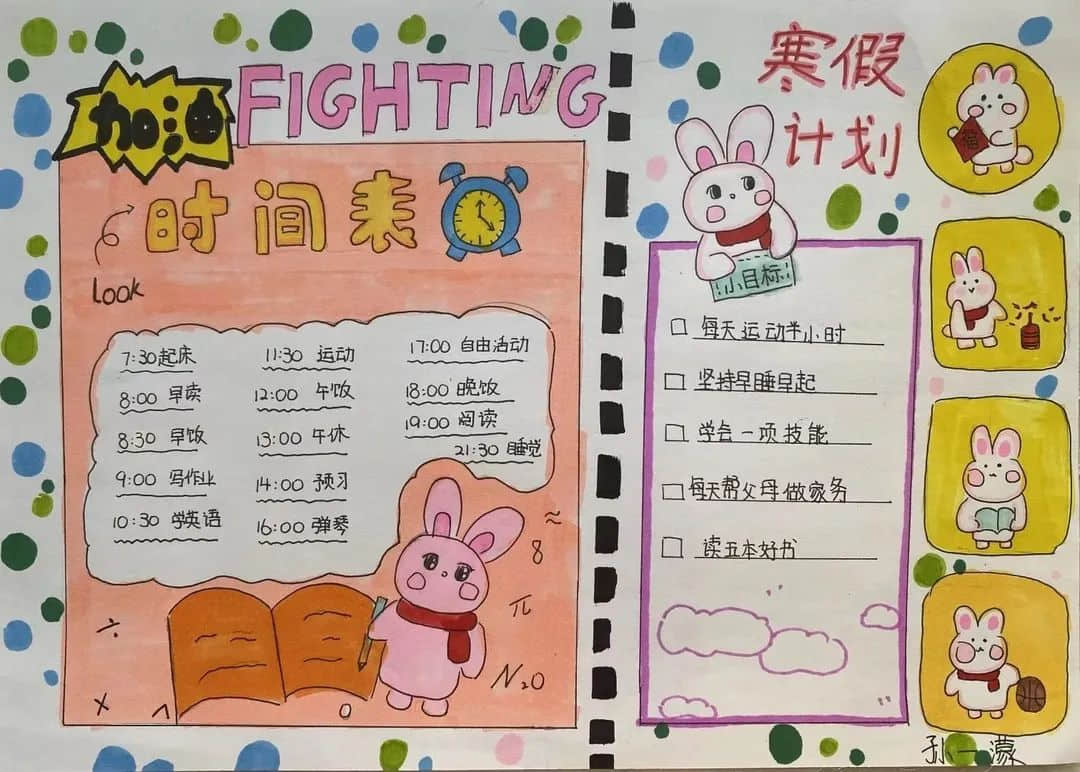 加油
FIGHTING
时间表
Look
7:30起床
8:00 早读
8:30 早饭
9:00 写作业
10:30 学英语
11:30 运动
12:00 午饭
13:00 午休
14:00 预习
16:00 弹琴
17:00 自由活动
18:00 晚饭
19:00 阅读
21:30 睡觉
÷
×
≈
8
π
N₂O
寒假
计划
小目标
每天运动半小时
坚持早睡早起
学会一项技能
每天帮父母做家务
读五本好书
福
孙一濛